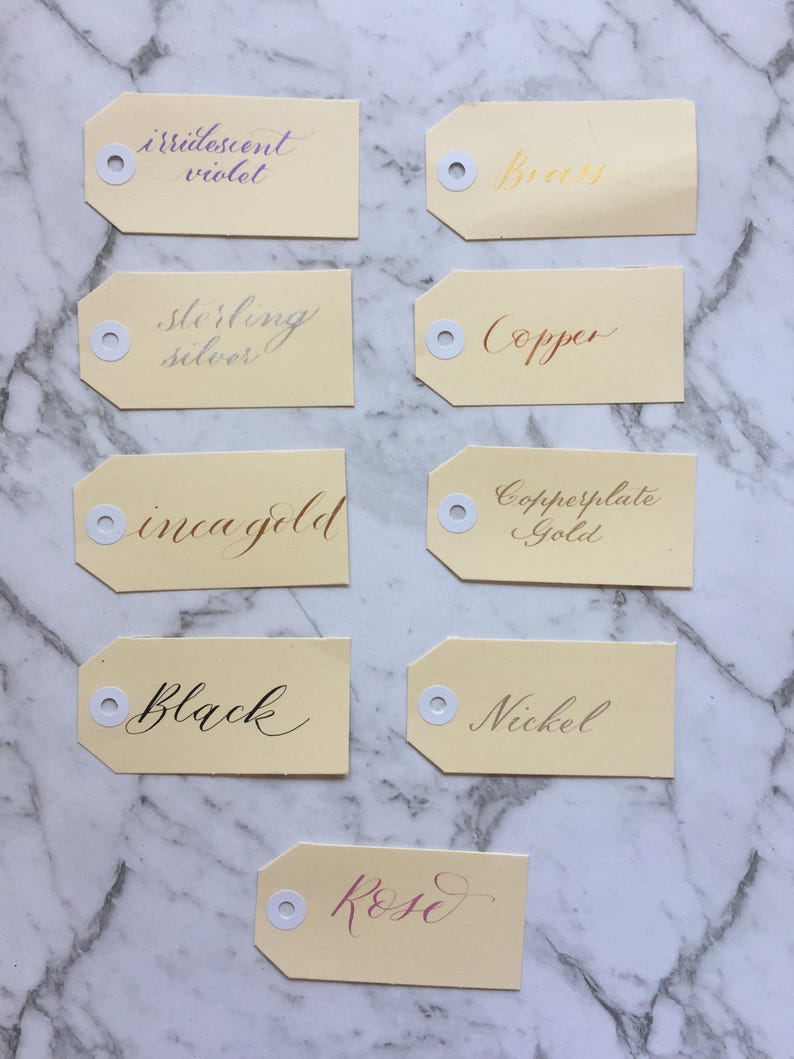 irridescent
violet
Brass
sterling
silver
Copper
inca gold
Copperplate
Gold
Black
Nickel
Rose